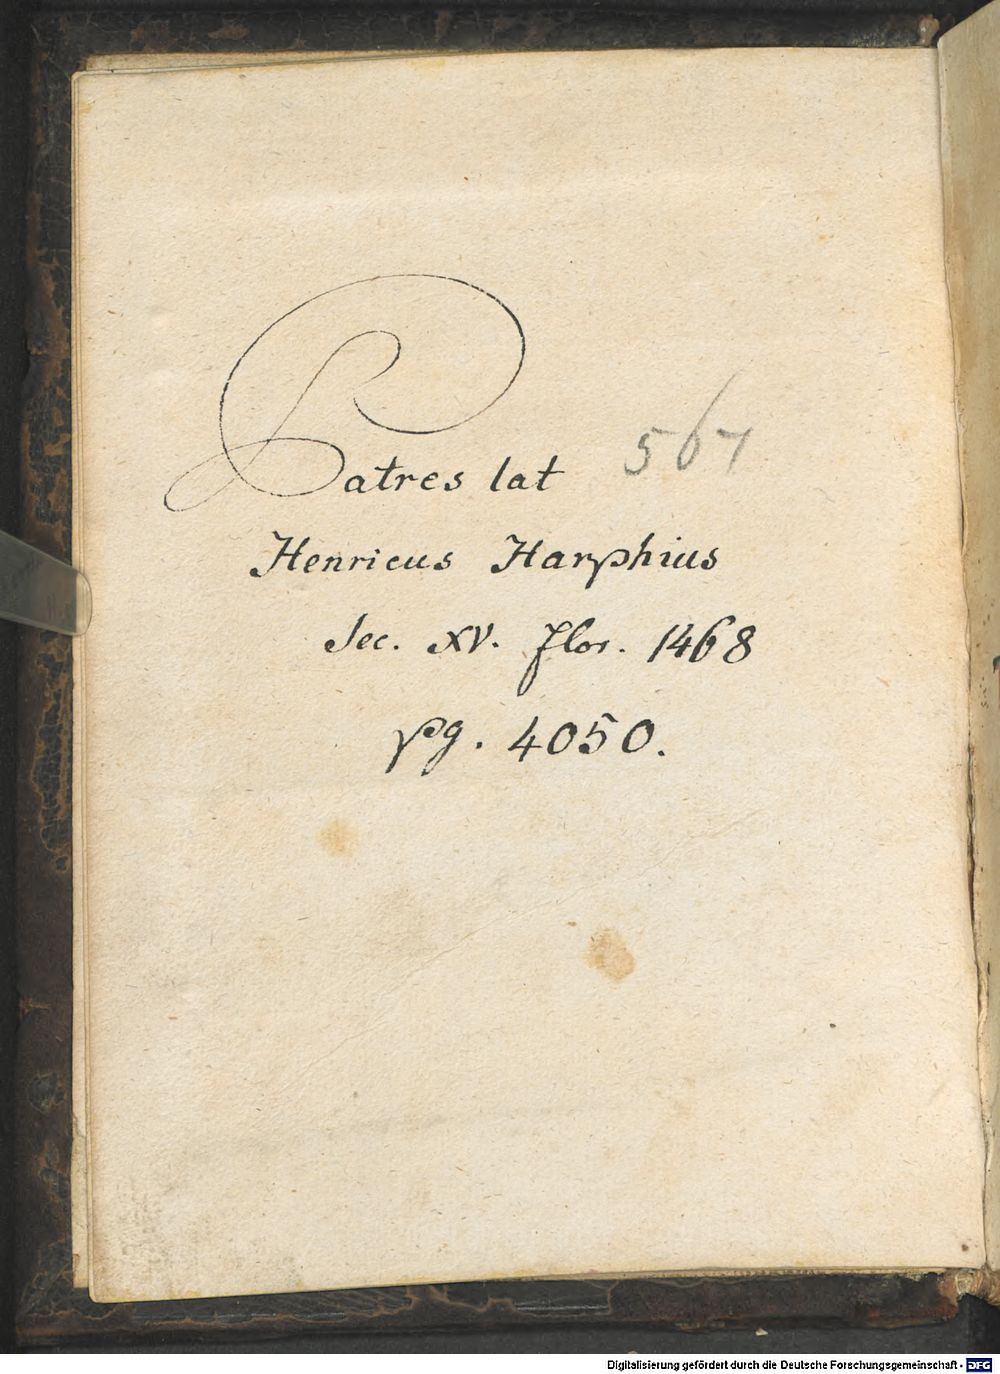 Patres lat 567
Henricus Harphius
Sec. XV. flor. 1468
pg. 4050.
Digitalisierung gefördert durch die Deutsche Forschungsgemeinschaft - DFG